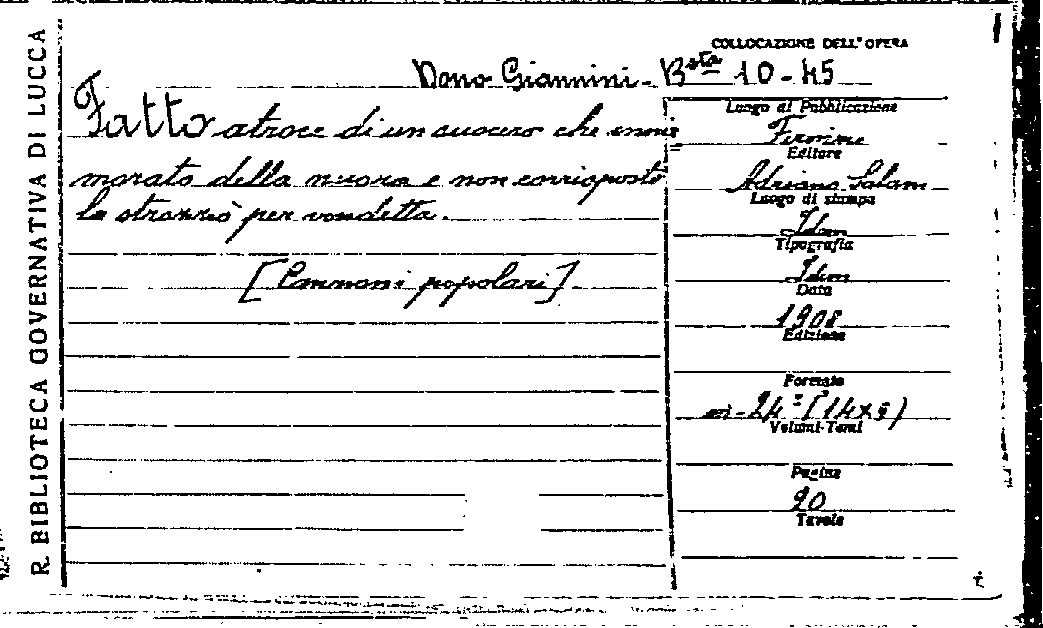 R. BIBLIOTECA GOVERNATIVA DI LUCCA
COLLOCAZIONE DELL'OPERA
Dono Giannini - Bsta 10-45
Fatto atroce di un suocero che inna=
morato della nuora e non corrisposto
la strozzò per vendetta.
[Canzoni popolari]
Luogo di Pubblicazione
Firenze
Editore
Adriano Salani
Luogo di stampa
Idem
Tipografia
Idem
Data
1908
Edizione
Formato
in-24º (14x9)
Volumi-Tomi
Pagine
20
Tavole